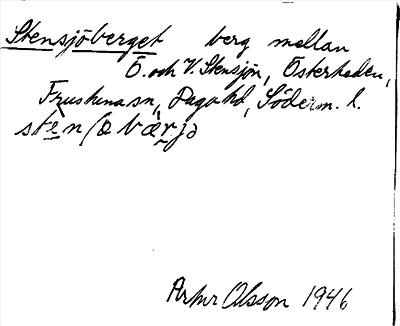 Stensjöberget berg mellan
Ö. och V. Stensjön, Österheden,
Frustuna sn, Daga hd, Söderm. l.
Artur Olsson 1946